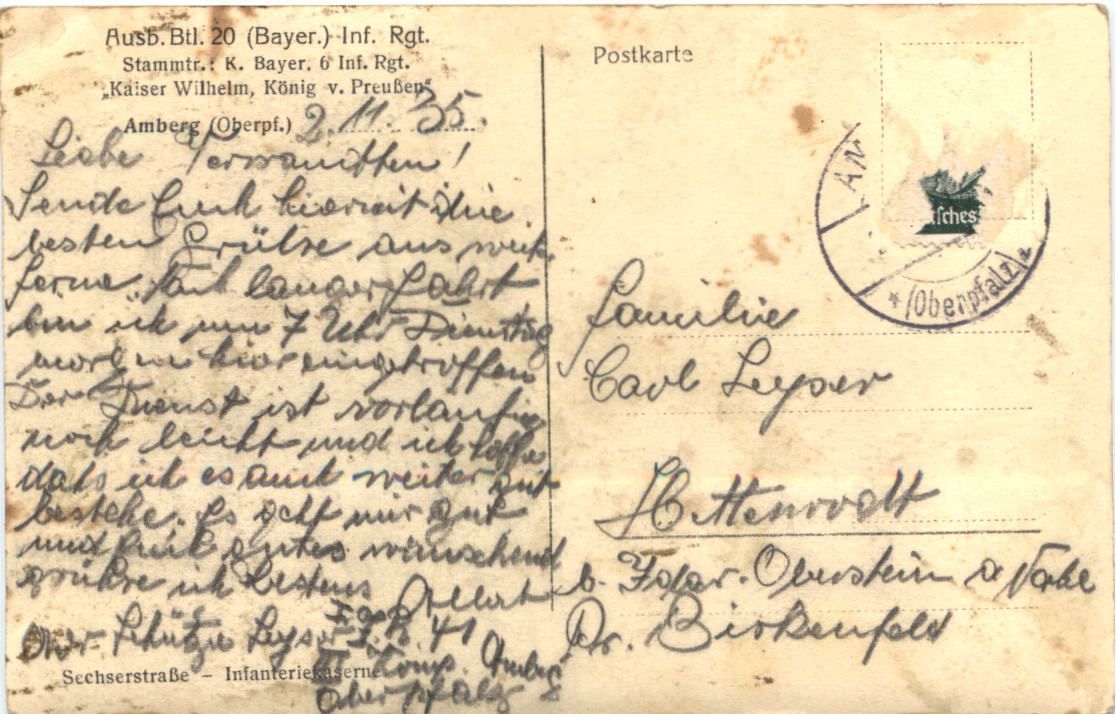 Ausb. Btl. 20 (Bayer.) Inf. Rgt.
Stammtr.: K. Bayer. 6 Inf. Rgt.
„Kaiser Wilhelm, König v. Preußen“
Amberg (Oberpf.) 2.11.35.
Liebe Verwandten!
Sende Euch hiermit die
besten Grüße aus weit
ferne. Nach langer Fahrt
bin ich um 7 Uhr Dienstag
morgen hier eingetroffen
Der Dienst ist vorläufig
noch leicht und ich hoffe
dass ich es auch weiter gut
bestehe. Es geht mir gut
und Euch gutes wünschend
grüsse ich bestens
Ober Schütze Leyser I.R. 41
Komp. Amberg
Oberpfalz
Sechserstraße – Infanteriekaserne
Postkarte
AM
tsches
* (Oberpfalz) *
Familie
Carl Leyser
Hettenrodt
b. Idar-Oberstein a Nahe
Kr. Birkenfeld